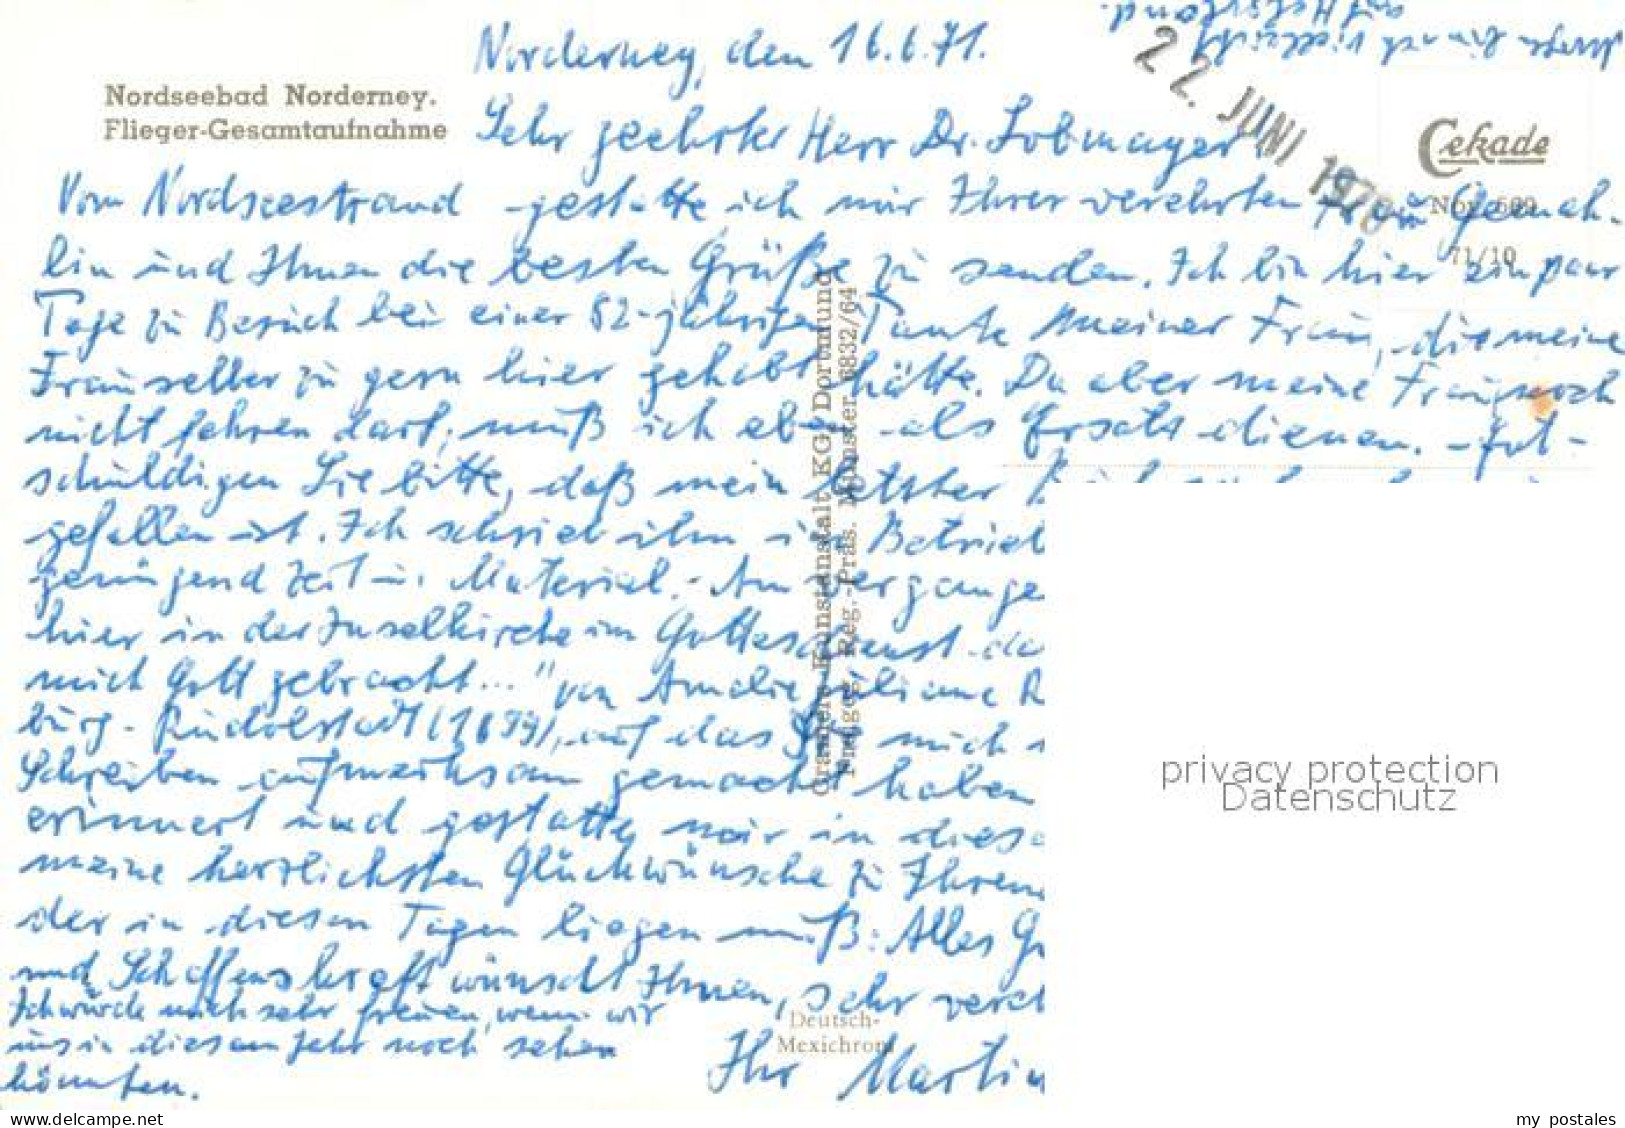 Norderney, den 16.6.71.
Nordseebad Norderney.
Flieger-Gesamtaufnahme
Sehr geehrter Herr Dr. Lobmayer!
22. JUNI
Cekade
71/10
Vom Nordseestrand gestatte ich mir Ihrer verehrten Frau Gemah-
lin und Ihnen die besten Grüße zu senden. Ich bin hier ein paar
Tage zu Besuch bei einer 82-jährigen Tante meiner Frau, die meine
Frau selber zu gern hier gehabt hätte. Da aber meine Frau noch
nicht fahren darf, muß ich eben als Ersatz dienen. - Ent-
schuldigen Sie bitte, daß mein letzter
gefallen ist. Ich schrieb ihn im Betrieb
genügend Zeit u. Material. - Am vergange
hier in der Inselkirche im Gottesdienst
mich Gott gebracht..." von Amalie Juliane
burg-Rudolstadt (1699), auf das Sie mich
Schreiben aufmerksam gemacht haben
erinnert und gestatte mir in diese
meine herzlichsten Glückwünsche zu Ihrem
der in diesen Tagen liegen muß: Alles G
und Schaffenskraft wünscht Ihnen, sehr vereh
Ich würde mich sehr freuen, wenn wir
uns in diesem Jahr noch sehen
könnten.
Ihr Martin
Deutsch-
Mexichrom
Graphero-Kunstanstalt KG Dortmund
Freigeg. Reg.-Präs. Münster 6832/64
privacy protection
Datenschutz
my postales
www.delcampe.net